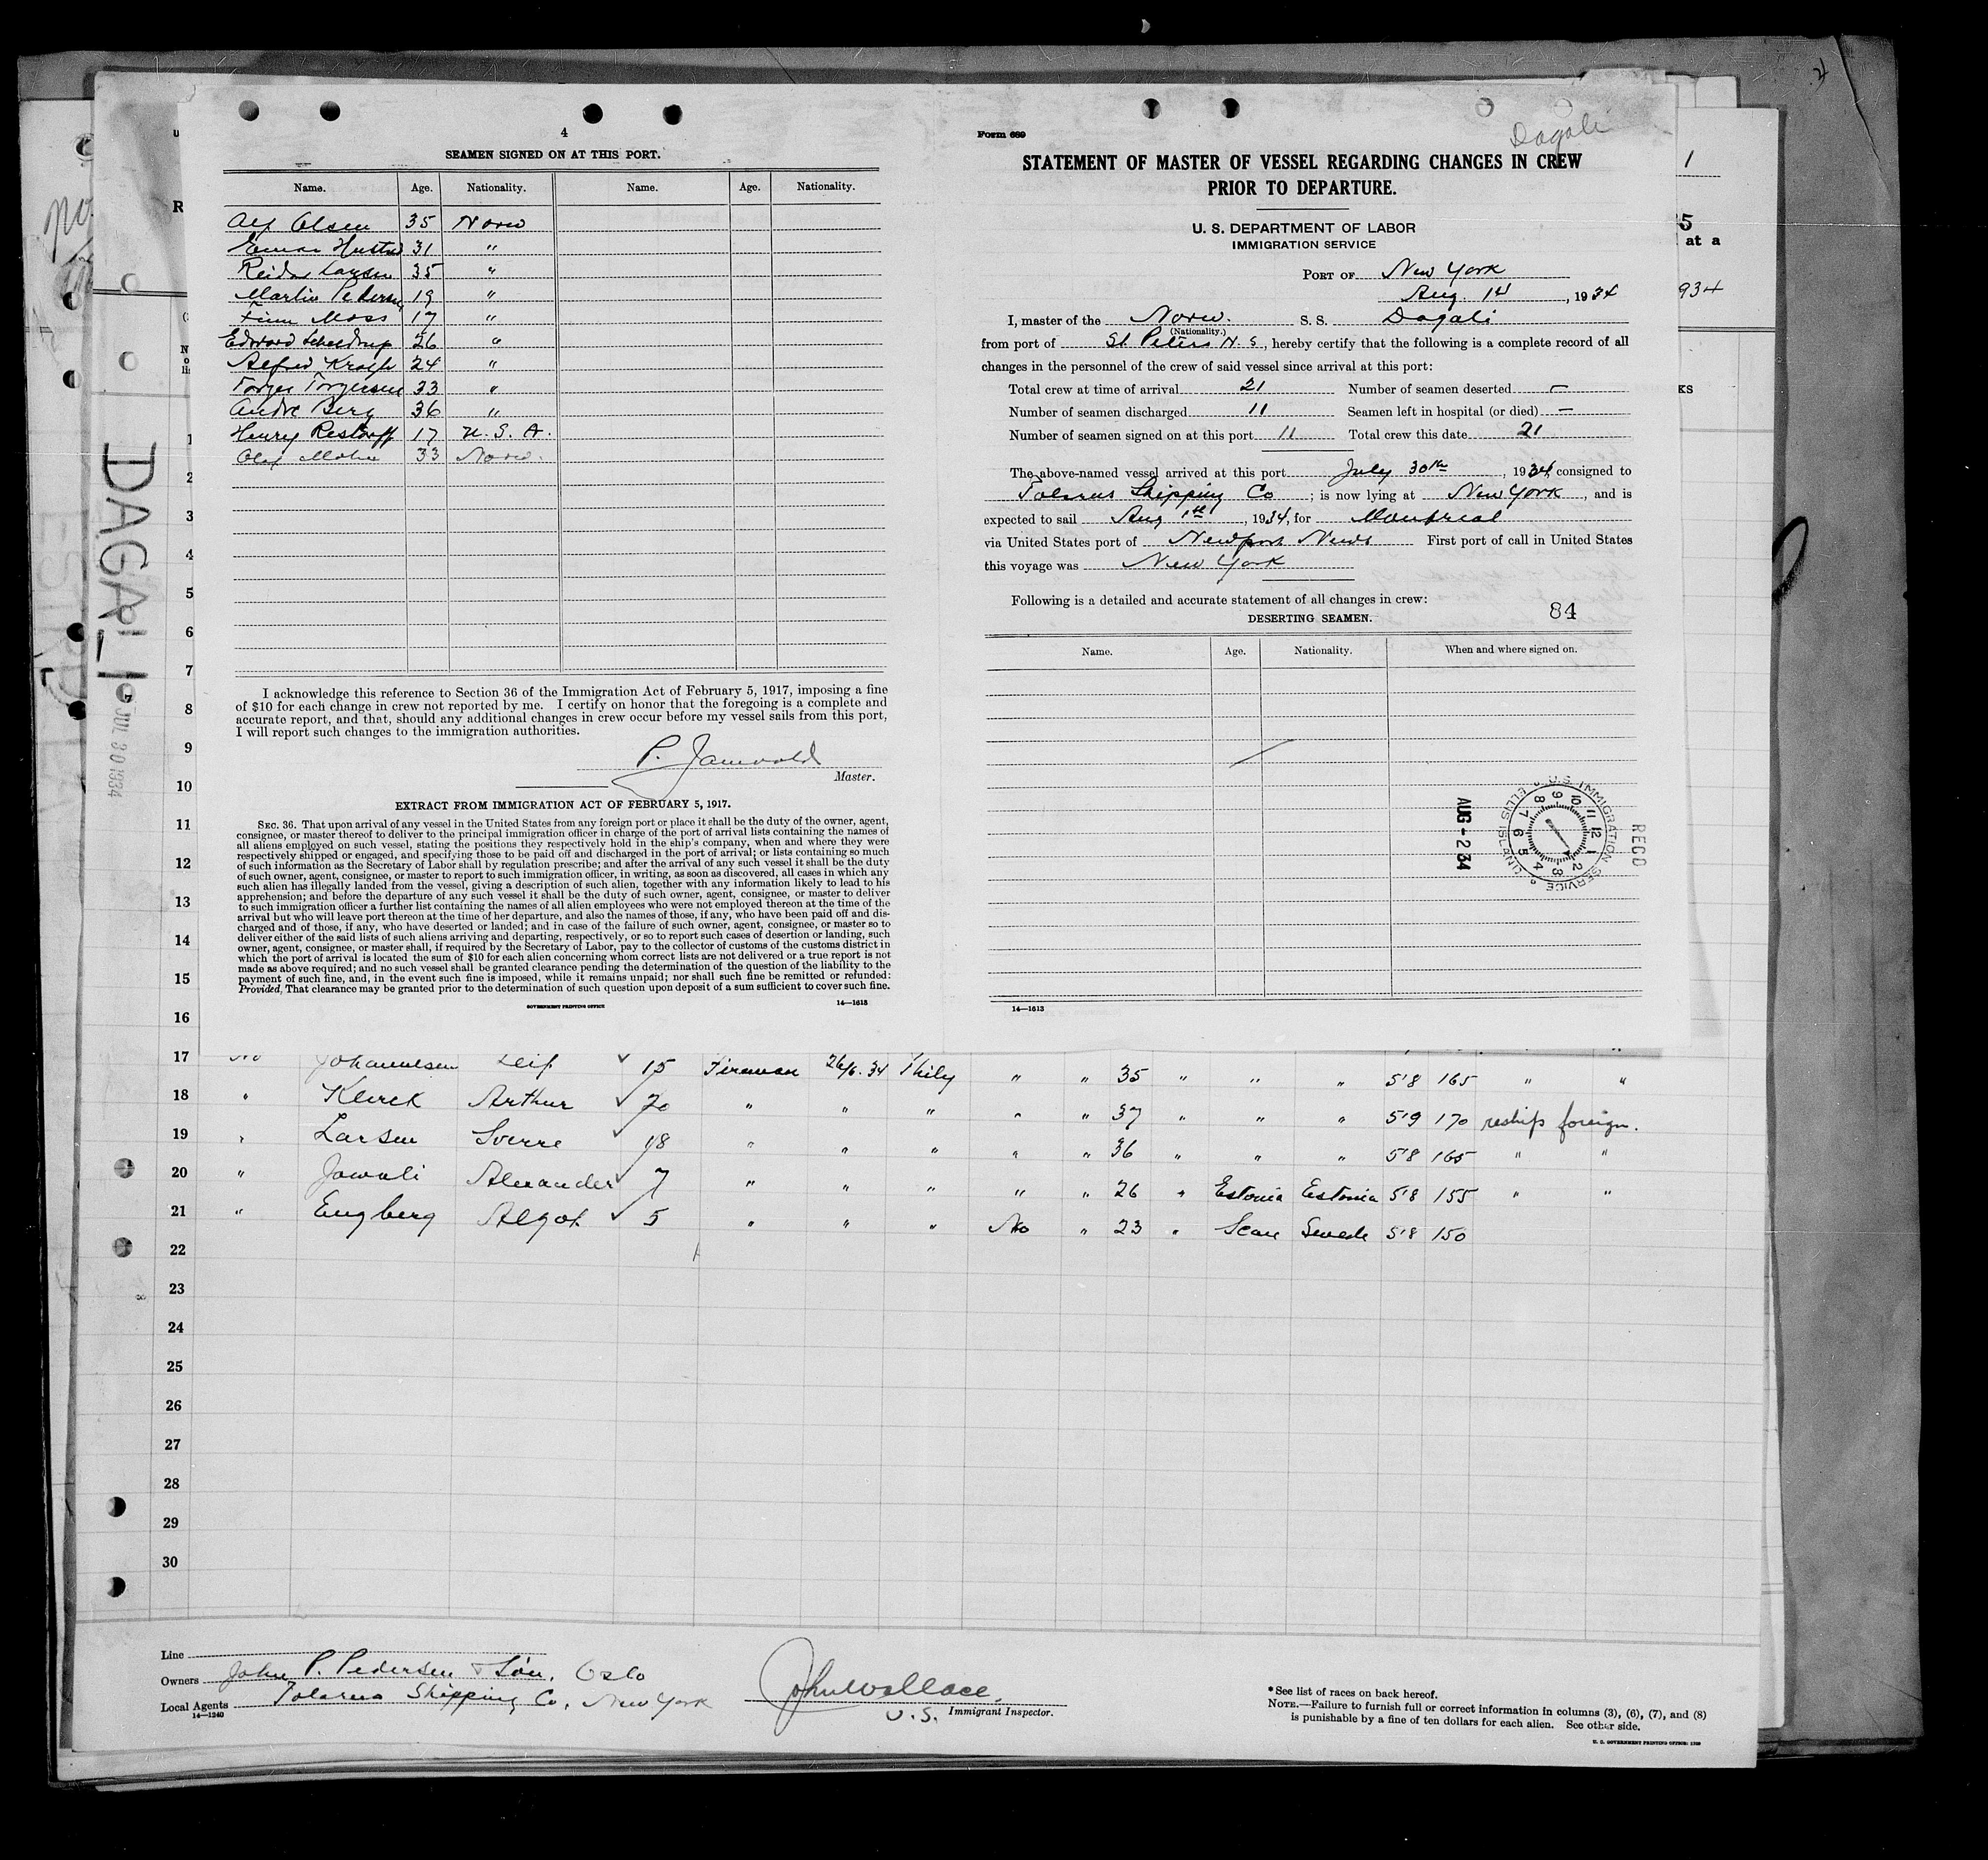 4
SEAMEN SIGNED ON AT THIS PORT.
Name. Age. Nationality. Name. Age. Nationality.
Alf Olsen 35 Norw
Einar 31 "
Reidar Larsen 35 "
Martin Pedersen 19 "
Finn Moss 17 "
Edward 26 "
Alfred Krogh 24 "
Torger Torgersen 33 "
Andre Berg 36 "
Henry Restorff 17 U. S. A.
Olaf 33 Norw.
I acknowledge this reference to Section 36 of the Immigration Act of February 5, 1917, imposing a fine
of $10 for each change in crew not reported by me. I certify on honor that the foregoing is a complete and
accurate report, and that, should any additional changes in crew occur before my vessel sails from this port,
I will report such changes to the immigration authorities.
P.
Master.
EXTRACT FROM IMMIGRATION ACT OF FEBRUARY 5, 1917.
SEC. 36. That upon arrival of any vessel in the United States from any foreign port or place it shall be the duty of the owner, agent,
consignee, or master thereof to deliver to the principal immigration officer in charge of the port of arrival lists containing the names of
all aliens employed on such vessel, stating the positions they respectively hold in the ship's company, when and where they were
respectively shipped or engaged, and specifying those to be paid off and discharged in the port of arrival; or lists containing so much
of such information as the Secretary of Labor shall by regulation prescribe; and after the arrival of any such vessel it shall be the duty
of such owner, agent, consignee, or master to report to such immigration officer, in writing, as soon as discovered, all cases in which any
such alien has illegally landed from the vessel, giving a description of such alien, together with any information likely to lead to his
apprehension; and before the departure of any such vessel it shall be the duty of such owner, agent, consignee, or master to deliver
to such immigration officer a further list containing the names of all alien employees who were not employed thereon at the time of the
arrival but who will leave port thereon at the time of her departure, and also the names of those, if any, who have been paid off and dis-
charged and of those, if any, who have deserted or landed; and in case of the failure of such owner, agent, consignee, or master so to
deliver either of the said lists of such aliens arriving and departing, respectively, or so to report such cases of desertion or landing, such
owner, agent, consignee, or master shall, if required by the Secretary of Labor, pay to the collector of customs of the customs district in
which the port of arrival is located the sum of $10 for each alien concerning whom correct lists are not delivered or a true report is not
made as above required; and no such vessel shall be granted clearance pending the determination of the question of the liability to the
payment of such fine, and, in the event such fine is imposed, while it remains unpaid; nor shall such fine be remitted or refunded:
Provided, That clearance may be granted prior to the determination of such question upon deposit of a sum sufficient to cover such fine.
GOVERNMENT PRINTING OFFICE 14—1613
Form 689
Dagali
STATEMENT OF MASTER OF VESSEL REGARDING CHANGES IN CREW
PRIOR TO DEPARTURE.
U. S. DEPARTMENT OF LABOR
IMMIGRATION SERVICE
PORT OF New York
Aug. 14, 1934
I, master of the Norw. S. S. Dagali
(Nationality.)
from port of St Peters N. S, hereby certify that the following is a complete record of all
changes in the personnel of the crew of said vessel since arrival at this port:
Total crew at time of arrival 21 Number of seamen deserted —
Number of seamen discharged 11 Seamen left in hospital (or died) —
Number of seamen signed on at this port 11 Total crew this date 21
The above-named vessel arrived at this port July 30th, 1934, consigned to
Shipping Co; is now lying at New York, and is
expected to sail Aug 1th, 1934, for Montreal
via United States port of Newport News First port of call in United States
this voyage was New York
Following is a detailed and accurate statement of all changes in crew:
84
DESERTING SEAMEN.
Name. Age. Nationality. When and where signed on.
AUG - 2 34
U.S. IMMIGRATION SERVICE ELLIS ISLAND
RECD
14—1613
DAGALI
JUL 30 1934
1
5
at a
934
KS
1
2
3
4
5
6
7
8
9
10
11
12
13
14
15
16
17 No Johannesen Leif 15 Fireman 26/6.34 Phily " " 35 " " " 5'8 165 " "
18 " Klerck Arthur 20 " " " " " 37 " " " 5'9 170 reships foreign.
19 " Larsen Sverre 18 " " " " " 36 " " " 5'8 165 " "
20 " Alexander 7 " " " " " 26 " Estonia Estonia 5'8 155 " "
21 " Engberg Algot 5 " " " No " 23 " Scan Swede 5'8 150
22
23
24
25
26
27
28
29
30
Line
Owners John P. Pedersen & Son, Oslo
Local Agents Shipping Co, New York
14—1240
John Wallace,
U.S. Immigrant Inspector.
*See list of races on back hereof.
NOTE.—Failure to furnish full or correct information in columns (3), (6), (7), and (8)
is punishable by a fine of ten dollars for each alien. See other side.